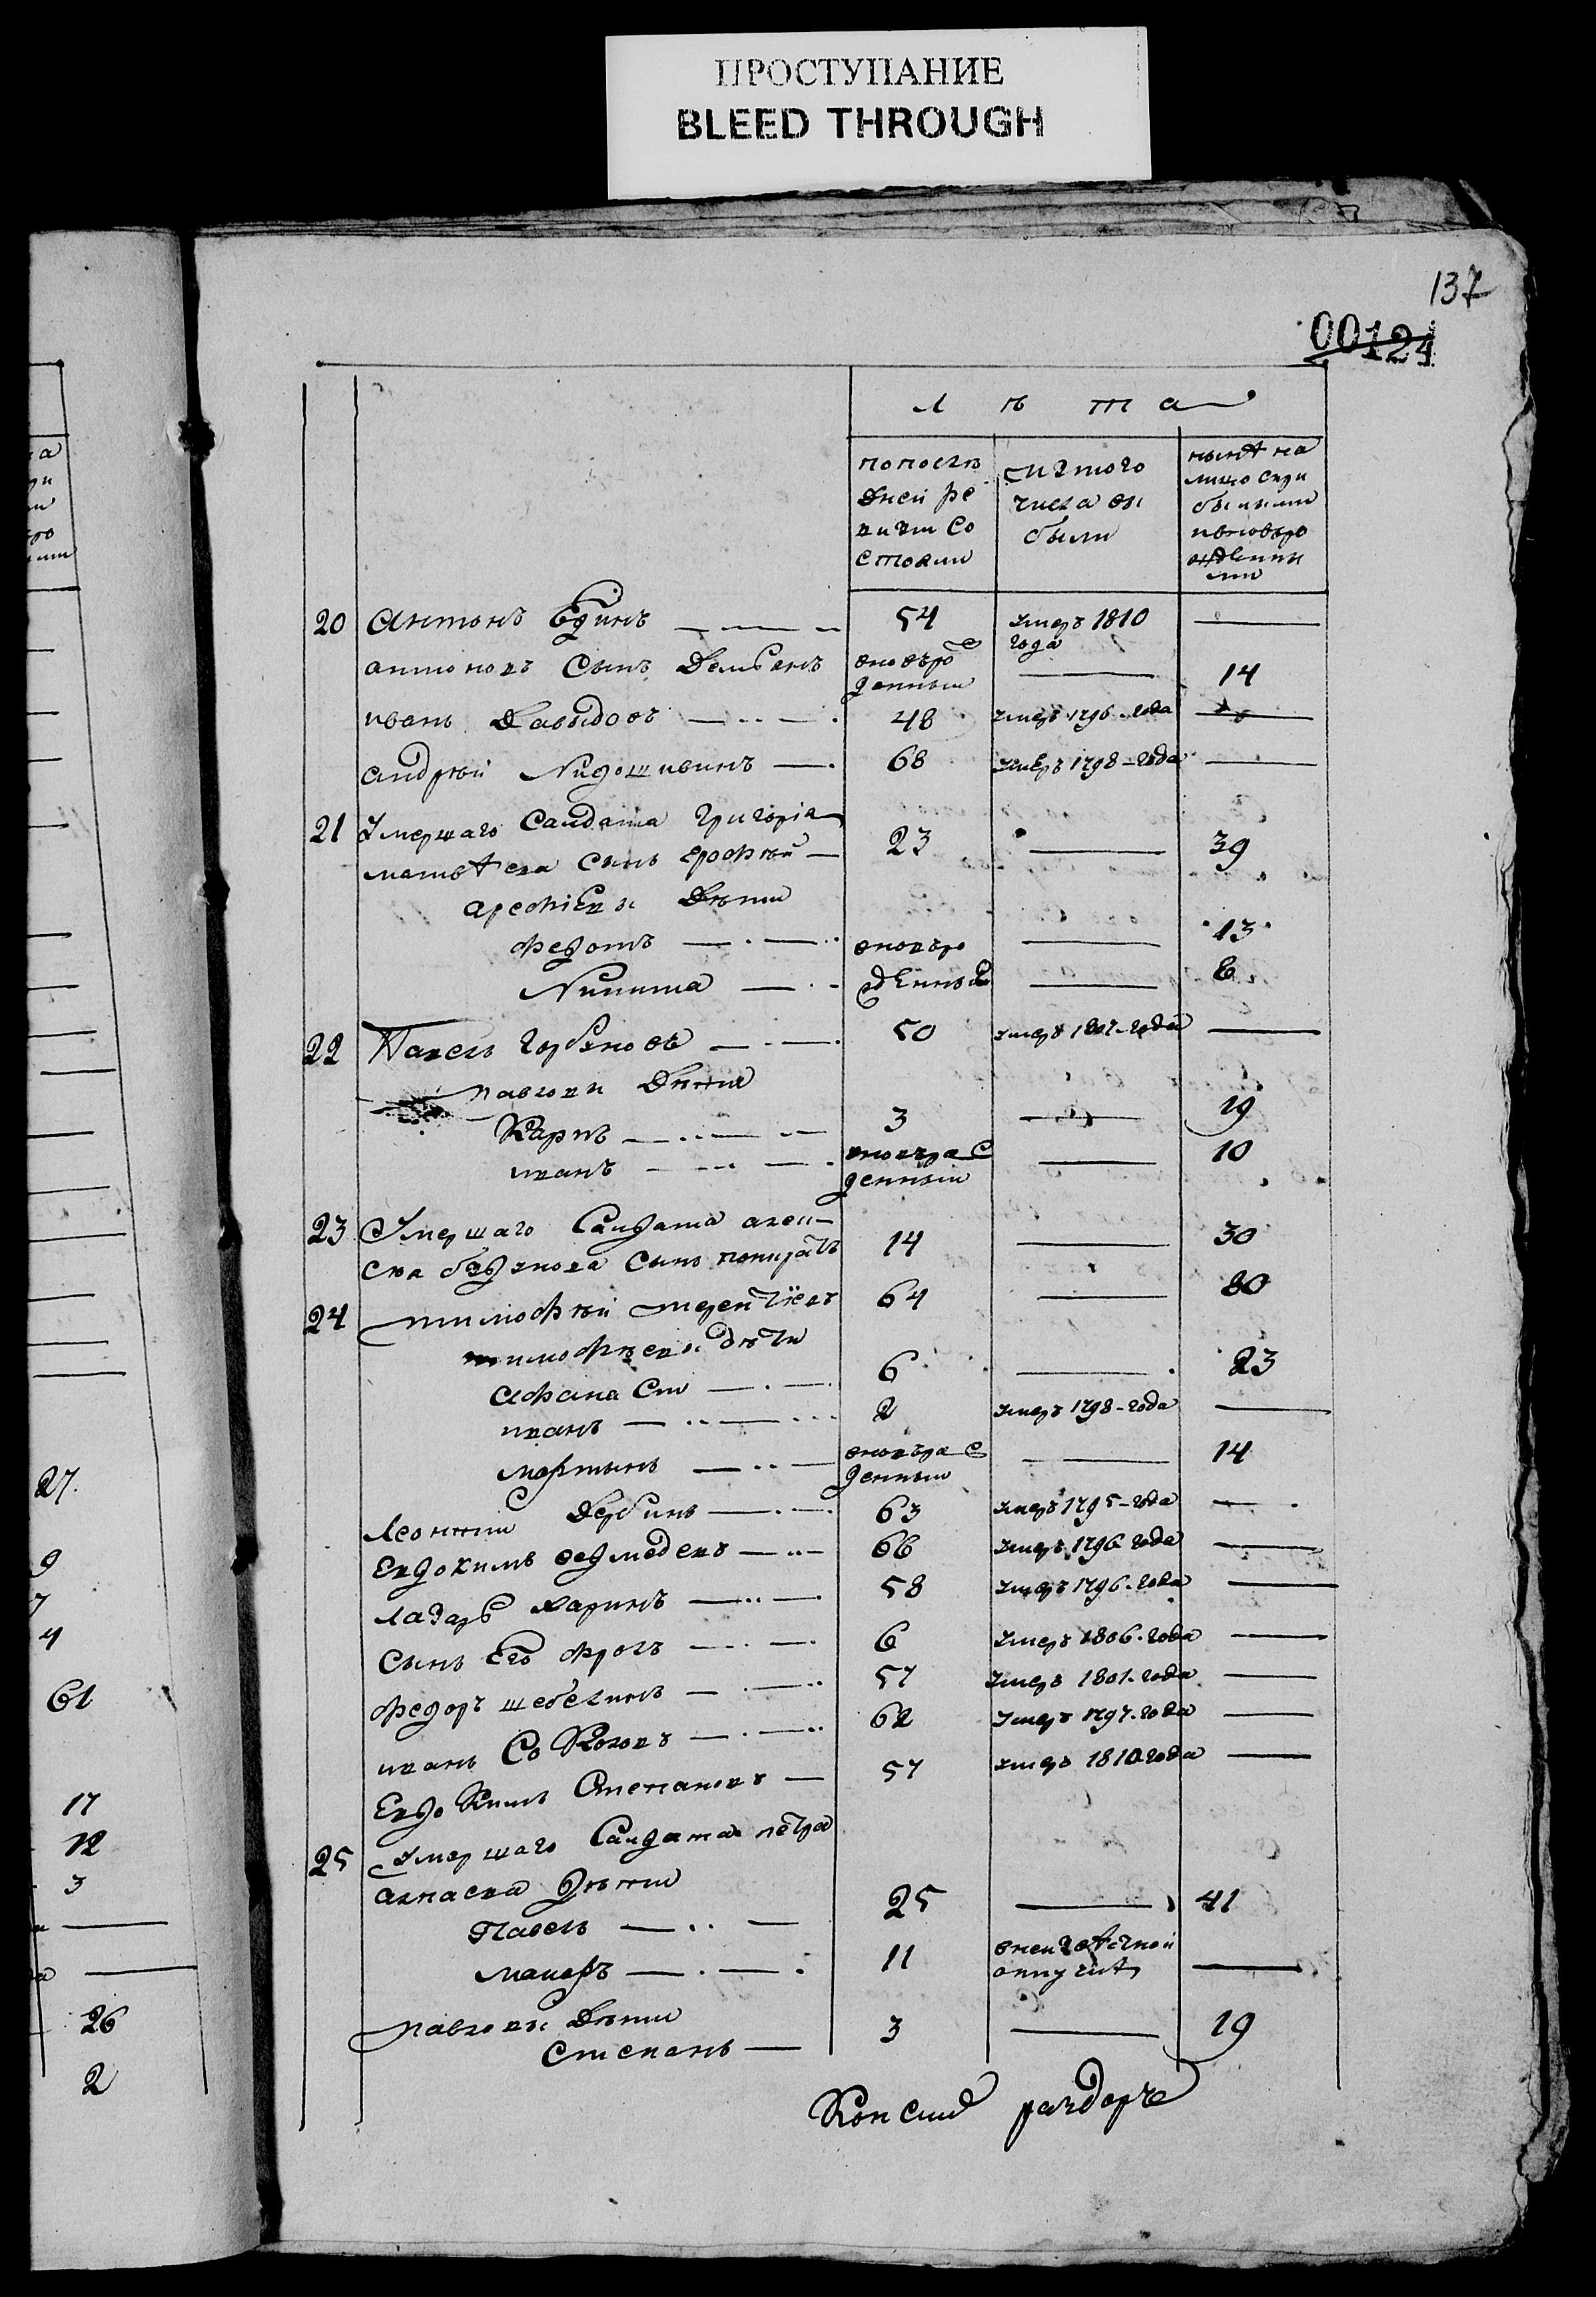 ПРОСТУПАНИЕ
BLEED THROUGH
137
00124
Лѣта
попослѣ
дней ре
визіи со
стояли
изтого
числа вы
были
нынѣ на
лицо спри
былыми
ивновьро
жденны
ми
20 Антонъ 54 умеръ 1810
года
антоновъ сынъ Демьянъ вновьро
жденный 14
иванъ Давыдовъ 48 умеръ 1796 года
андрѣй 68 умеръ 1798 года
21 Умершаго Салдата григорія
матвѣева сынъ ерофѣй 23 39
Дѣти
федотъ вновьро 13
Никита жденныя 6
22 Павелъ Горбуновъ 50 умеръ 1807 года
павловы Дѣти
Карпъ 3 19
иванъ вновьро
жденный 10
23 Умершаго Салдата алек
сея сынъ 14 30
24 тимофѣй терентіевъ 64 80
тимофѣевы дѣти
Афанасій 6 23
иванъ 2 умеръ 1798 года
мартынъ вновьро
жденный 14
Леонтій Дербинъ 63 умеръ 1795 года
Евдокимъ 66 умеръ 1796 года
лазарь 58 умеръ 1796 года
сынъ Его фролъ 6 умеръ 1806 года
федоръ щебелинъ 57 умеръ 1801 года
иванъ Соколовъ 62 умеръ 1797 года
Евдокимъ Степановъ 57 умеръ 1810 года
25 Умершаго Салдата пётра
дѣти
Павелъ 25 41
макаръ 11
павловы Дѣти
Степанъ 3 19
27
9
7
4
61
17
12
3
26
2